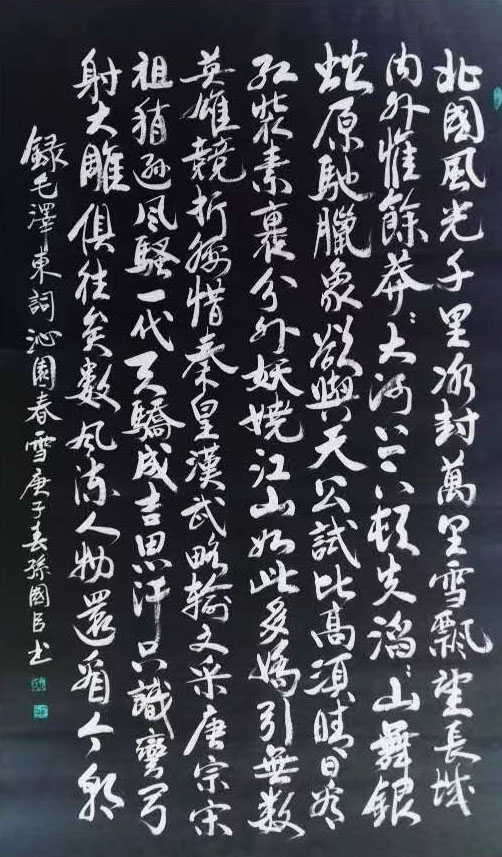 北國風光千里冰封萬里雪飄望長城
内外惟餘莽〻大河上下頓失滔〻山舞銀
蛇原馳臘象欲與天公試比高須晴日看
红裝素裹分外妖嬈江山如此多嬌引無數
英雄競折腰惜秦皇漢武略輸文采唐宗宋
祖稍遜风騷一代天驕成吉思汗只識彎弓
射大雕俱往矣數风流人物還看今朝
録毛澤東詞沁園春雪庚子春孫國臣书